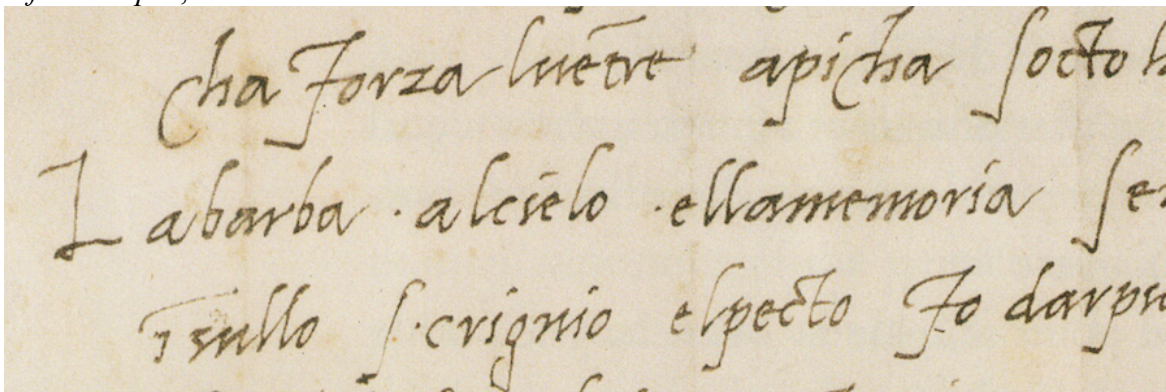 cha forza luētre apicha socto
Labarba · alcielo · ellamemoria
īsullo scrignio elpecto fo